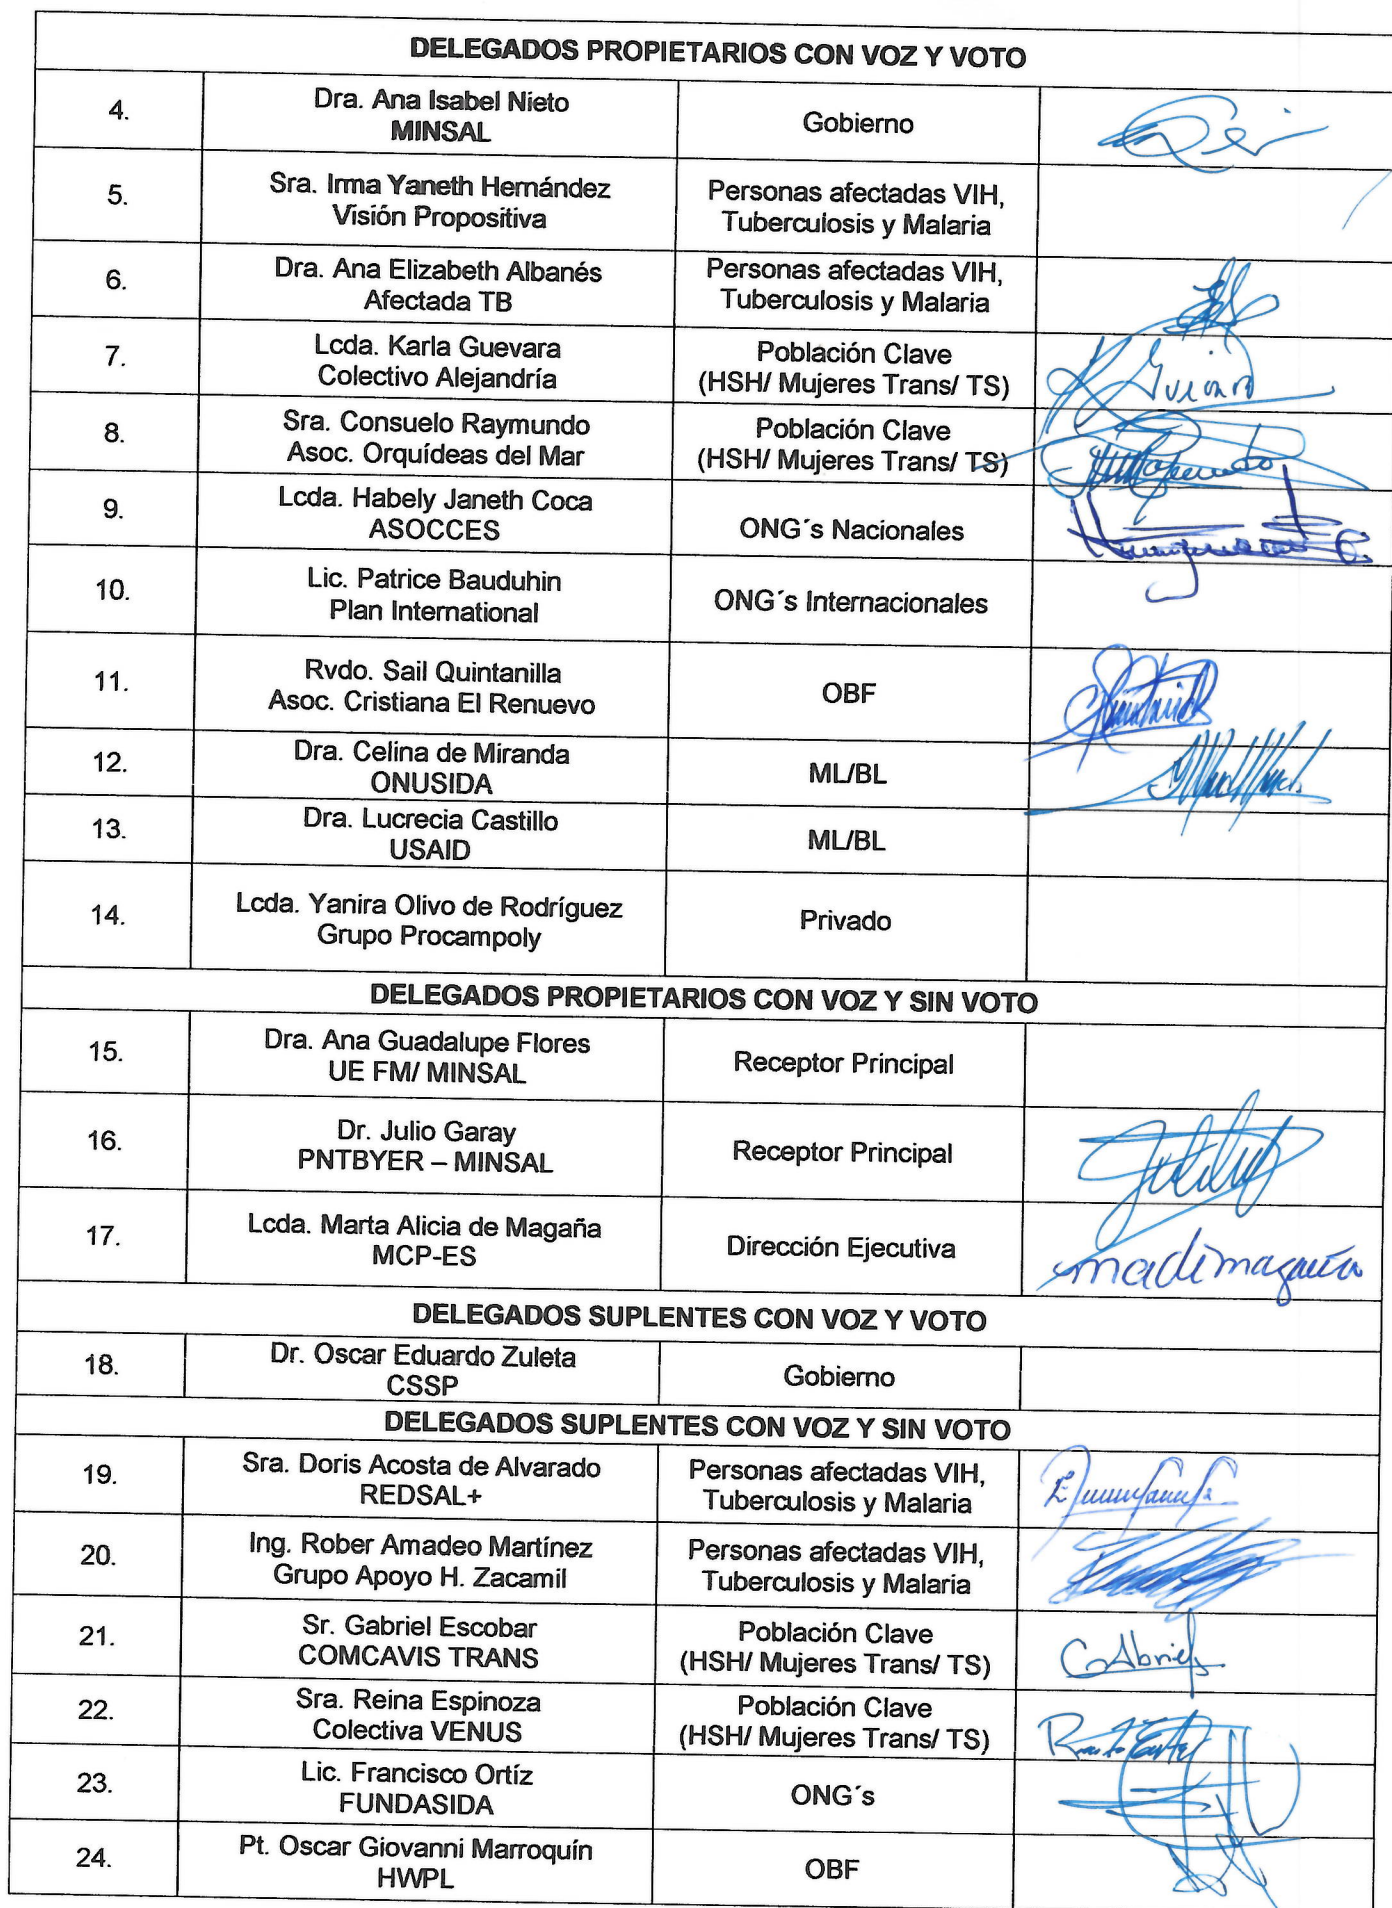 DELEGADOS PROPIETARIOS CON VOZ Y VOTO
4.
Dra. Ana Isabel Nieto
MINSAL
Gobierno
5.
Sra. Irma Yaneth Hernández
Visión Propositiva
Personas afectadas VIH,
Tuberculosis y Malaria
6.
Dra. Ana Elizabeth Albanés
Afectada TB
Personas afectadas VIH,
Tuberculosis y Malaria
7.
Lcda. Karla Guevara
Colectivo Alejandría
Población Clave
(HSH/ Mujeres Trans/ TS)
8.
Sra. Consuelo Raymundo
Asoc. Orquídeas del Mar
Población Clave
(HSH/ Mujeres Trans/ TS)
9.
Lcda. Habely Janeth Coca
ASOCCES
ONG´s Nacionales
10.
Lic. Patrice Bauduhin
Plan International
ONG´s Internacionales
11.
Rvdo. Sail Quintanilla
Asoc. Cristiana El Renuevo
OBF
12.
Dra. Celina de Miranda
ONUSIDA
ML/BL
13.
Dra. Lucrecia Castillo
USAID
ML/BL
14.
Lcda. Yanira Olivo de Rodríguez
Grupo Procampoly
Privado
DELEGADOS PROPIETARIOS CON VOZ Y SIN VOTO
15.
Dra. Ana Guadalupe Flores
UE FM/ MINSAL
Receptor Principal
16.
Dr. Julio Garay
PNTBYER – MINSAL
Receptor Principal
17.
Lcda. Marta Alicia de Magaña
MCP-ES
Dirección Ejecutiva
madimagaña
DELEGADOS SUPLENTES CON VOZ Y VOTO
18.
Dr. Oscar Eduardo Zuleta
CSSP
Gobierno
DELEGADOS SUPLENTES CON VOZ Y SIN VOTO
19.
Sra. Doris Acosta de Alvarado
REDSAL+
Personas afectadas VIH,
Tuberculosis y Malaria
20.
Ing. Rober Amadeo Martínez
Grupo Apoyo H. Zacamil
Personas afectadas VIH,
Tuberculosis y Malaria
21.
Sr. Gabriel Escobar
COMCAVIS TRANS
Población Clave
(HSH/ Mujeres Trans/ TS)
Gabriel
22.
Sra. Reina Espinoza
Colectiva VENUS
Población Clave
(HSH/ Mujeres Trans/ TS)
23.
Lic. Francisco Ortíz
FUNDASIDA
ONG´s
24.
Pt. Oscar Giovanni Marroquín
HWPL
OBF